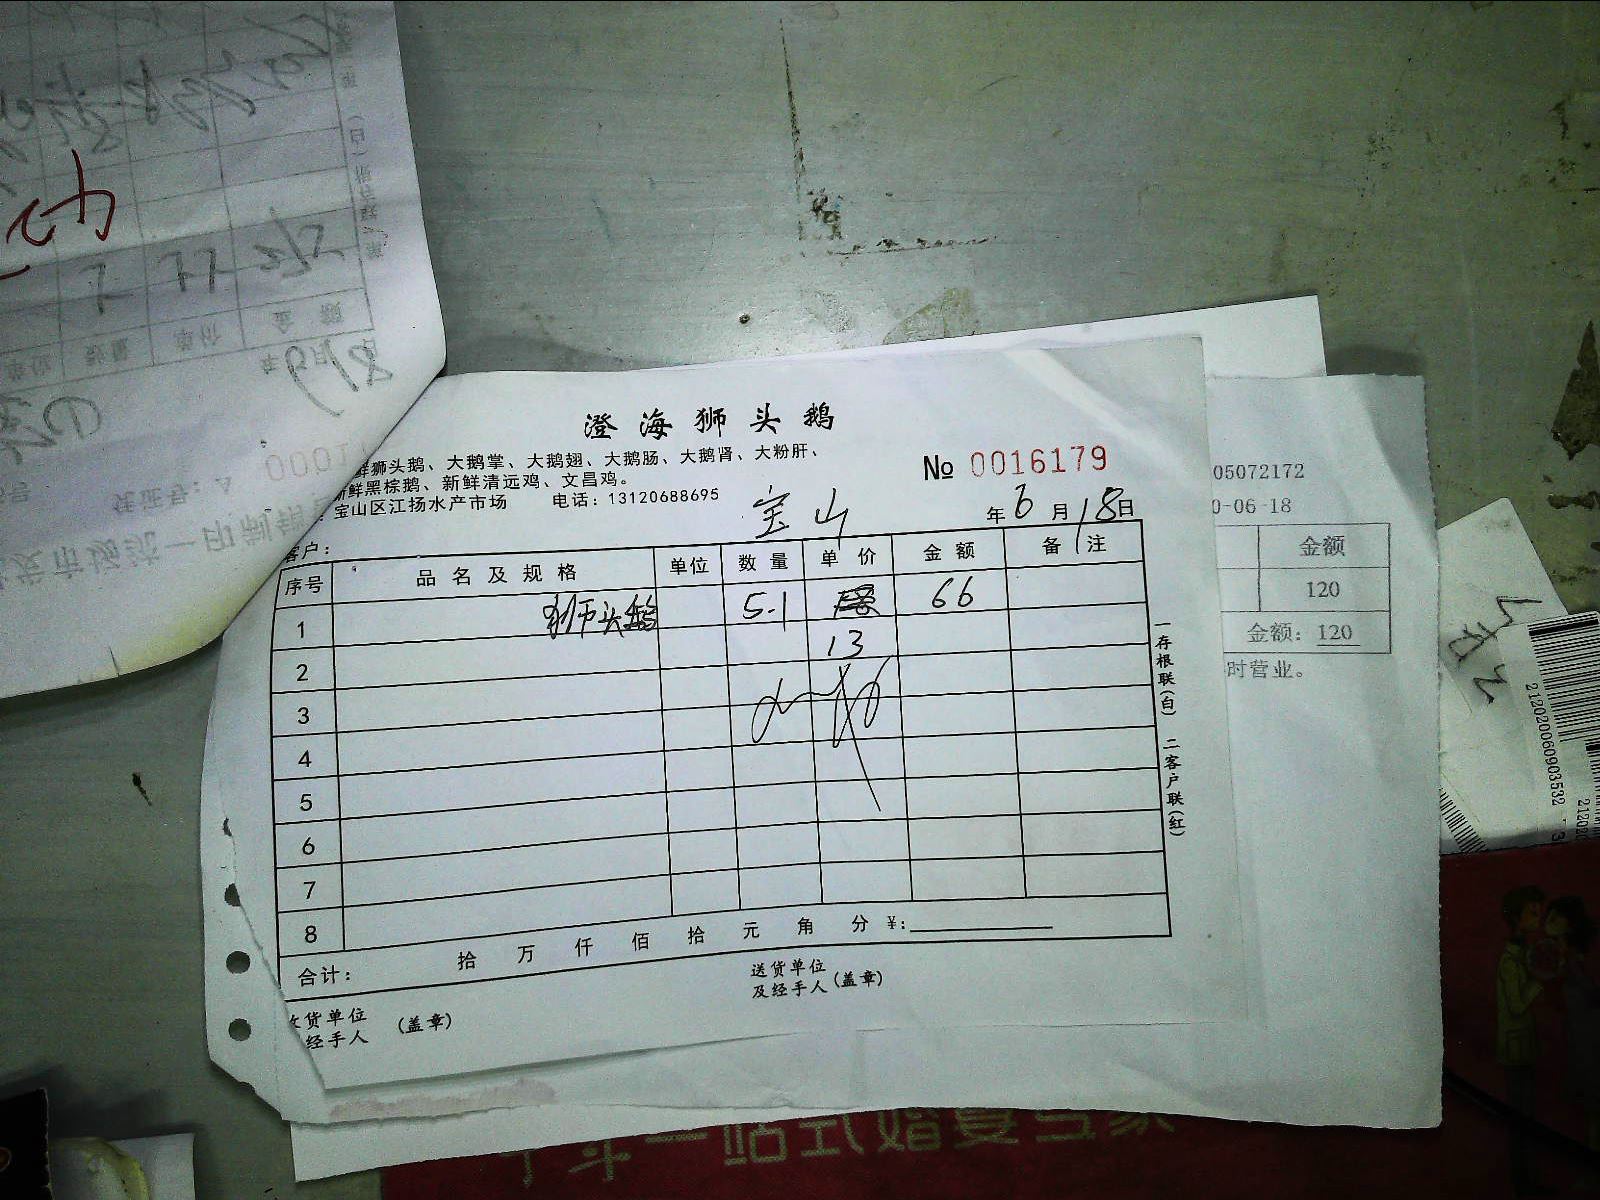 澄海狮头鹅
鲜狮头鹅、大鹅掌、大鹅翅、大鹅肠、大鹅肾、大粉肝、
新鲜黑棕鹅、新鲜清远鸡、文昌鸡。
宝山区江扬水产市场 电话：13120688695
№ 0016179
宝山
年 6 月 18 日
客户：
序号 品名及规格 单位 数量 单价 金额 备注
1 狮头鹅 5.1 66
2 13
3
4
5
6
7
8
合计： 拾 万 仟 佰 拾 元 角 分 ¥:
收货单位
经手人 (盖章)
送货单位
及经手人 (盖章)
一存根联(白) 二客户联(红)
05072172
0-06-18
金额
120
金额: 120
时营业。
212020060903532
2120
一站式婚宴专家